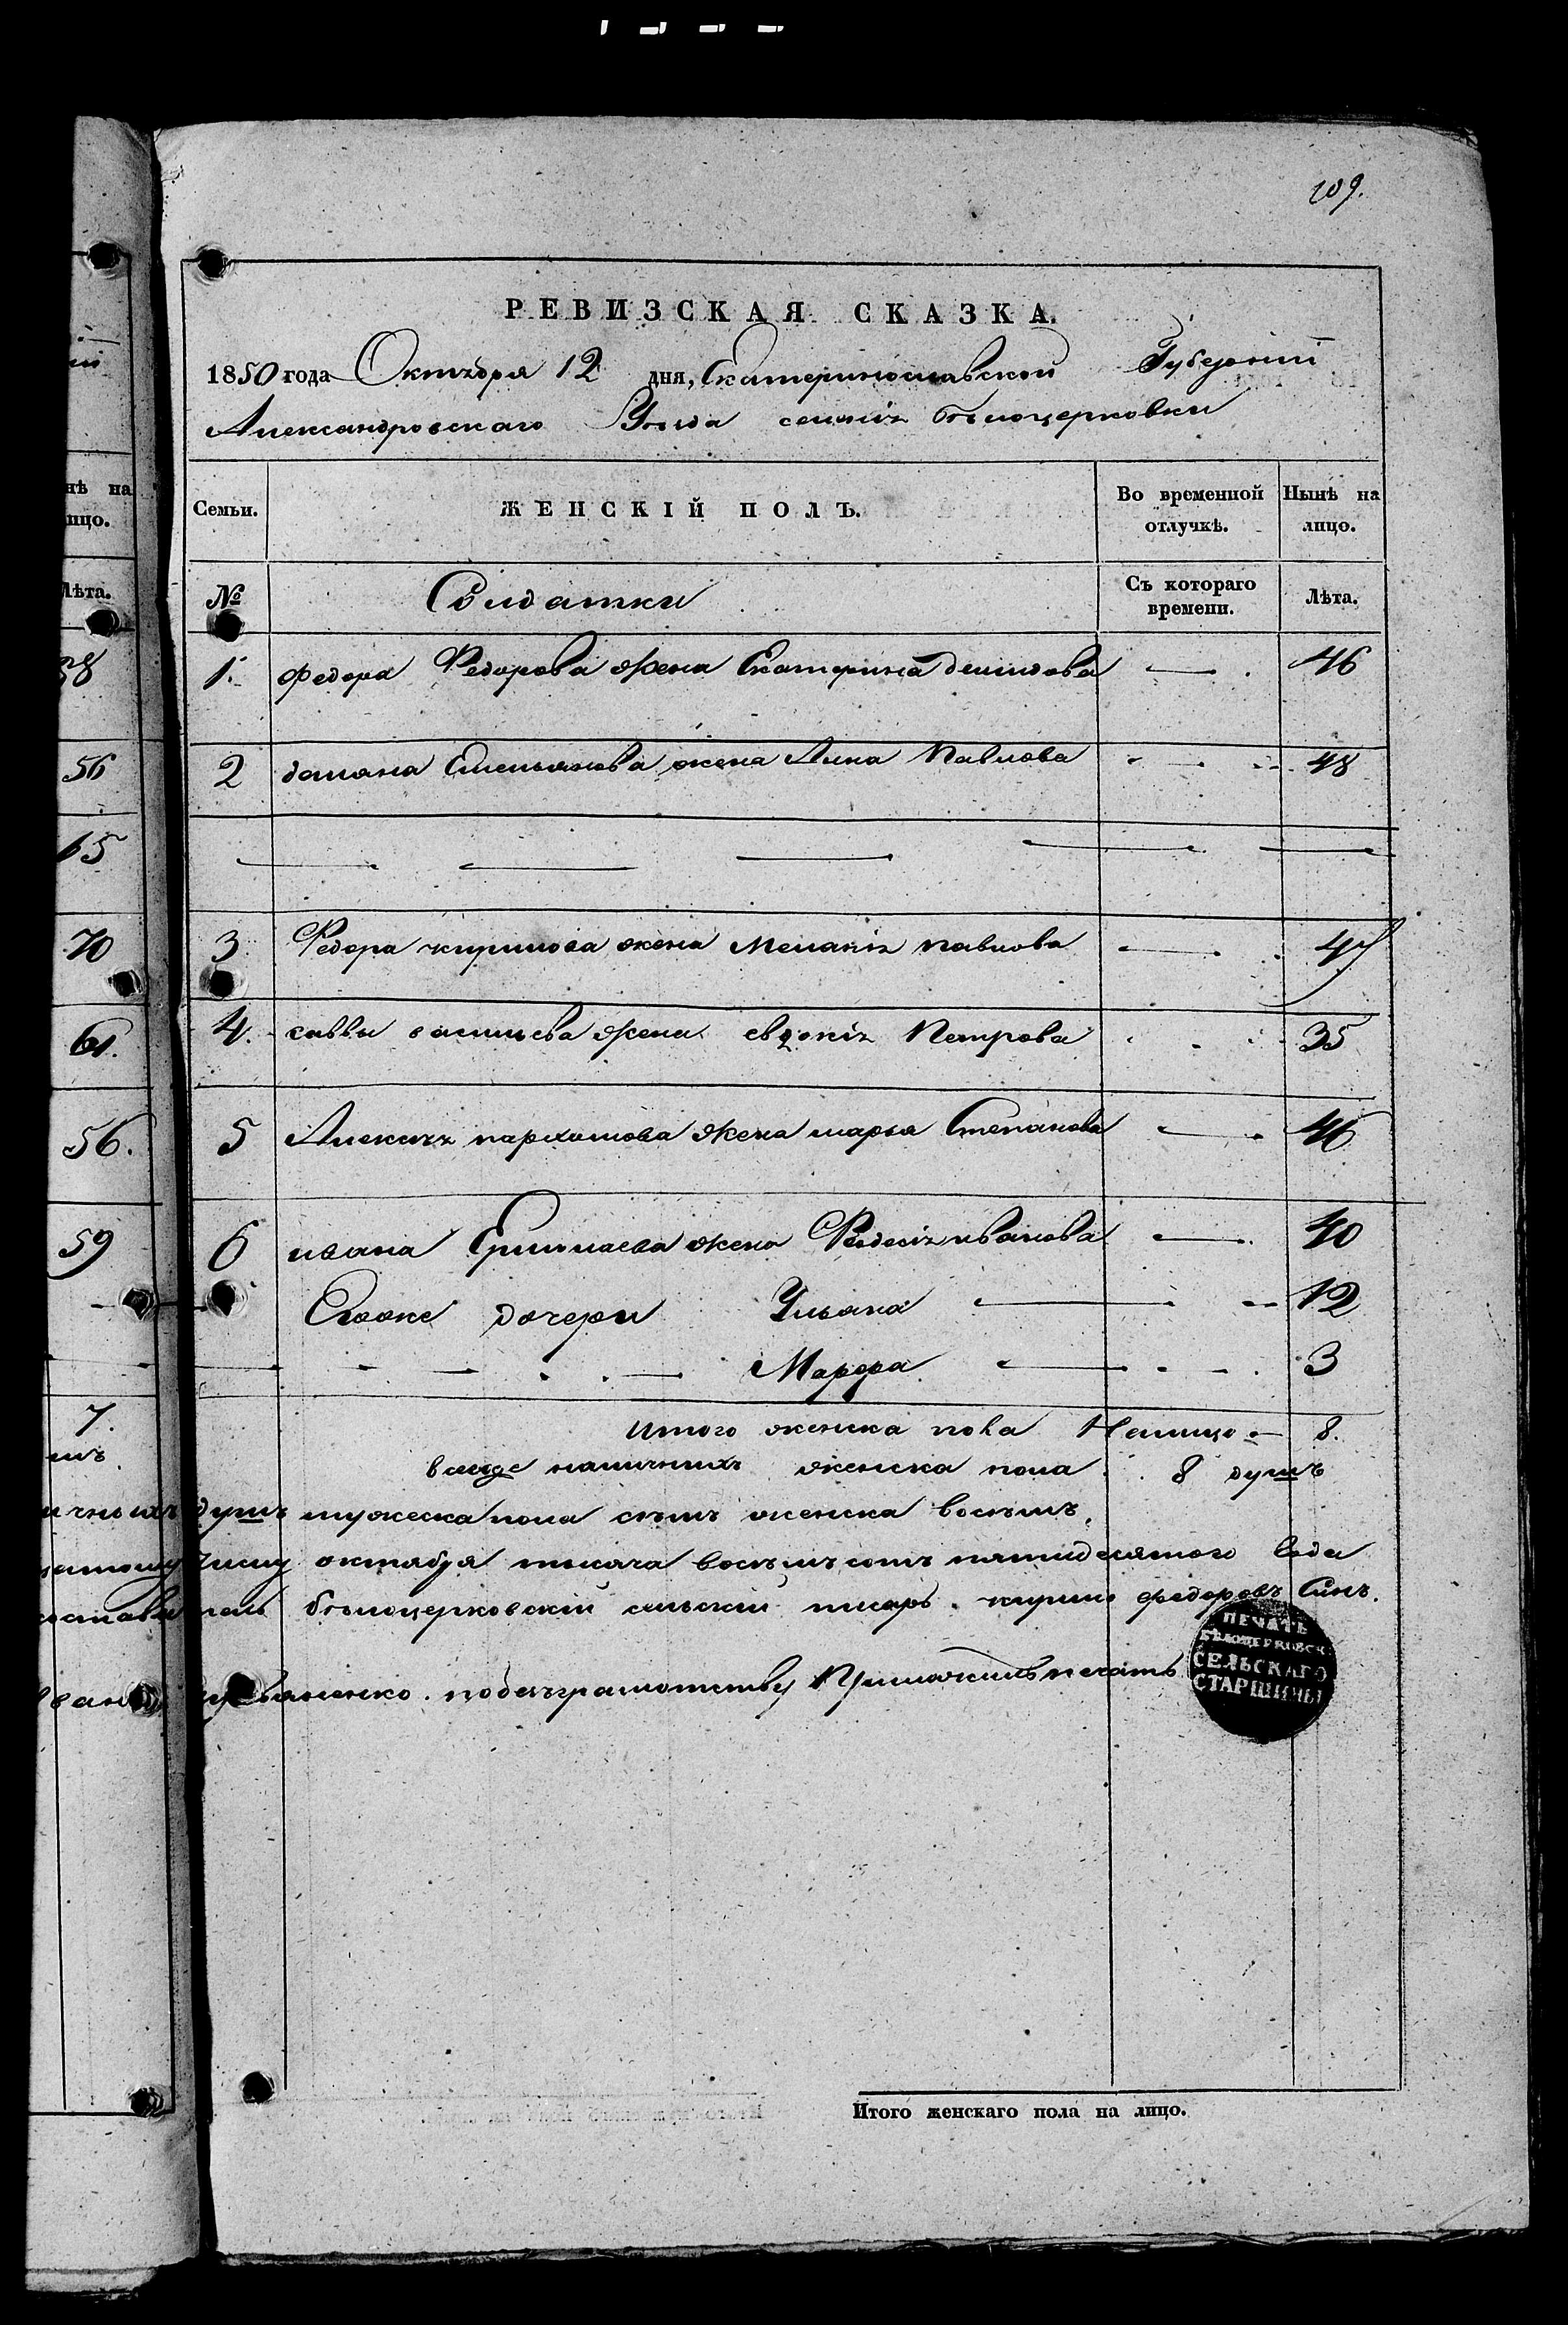 109.
РЕВИЗСКАЯ СКАЗКА.
1850 года Октября 12 дня, Екатеринославской Губерніи
Александровскаго Уѣзда селенія бѣлоцерковки
нѣ на
ицо.
Семьи. ЖЕНСКІЙ ПОЛЪ. Во временной отлучкѣ. Нынѣ на лицо.
Лѣта. № Солдатки Съ котораго времени. Лѣта.
38 1. Федора Федорова жена Екатерина демидова — 46
56 2 домана Емельянова жена Анна Павлова — 48
65 — — — — —
70 3 Федора кирилова жена Меланія павлова — 47
61. 4. саввы васильева жена евдокія Петрова 35
56. 5 Алексея пархомова жена марья Степанова — 46
59 6 ивана Ермолаева жена Феодосія иванова — 40
Егоже дочери Ульяна — 12
— Марфа — 3
7. итого женска пола Налицо — 8.
всего наличныхъ женска пола 8 душъ
ичныхъ душъ мужеска пола семъ женска восѣмъ.
числу октября тысяча восѣмъ сотъ пятидесятого года
составилъ бѣлоцерковскій сельскій писарь кирило федоровъ Синъ.
по безграмотству Приложилъ печать
ПЕЧАТЬ
БѢЛОЦЕРКОВСК.
СЕЛЬСКАГО
СТАРШИНЫ
Итого женскаго пола на лицо.